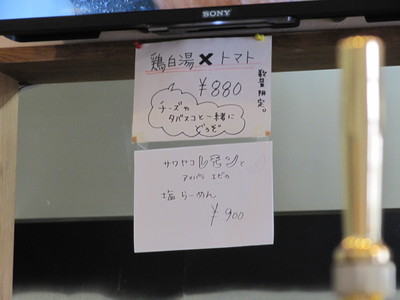 SONY
鶏白湯×トマト
¥880
数量限定。
チーズや
タバスコと一緒に
どうぞ
サワヤコレモンと
エビの
塩らーめん
¥900